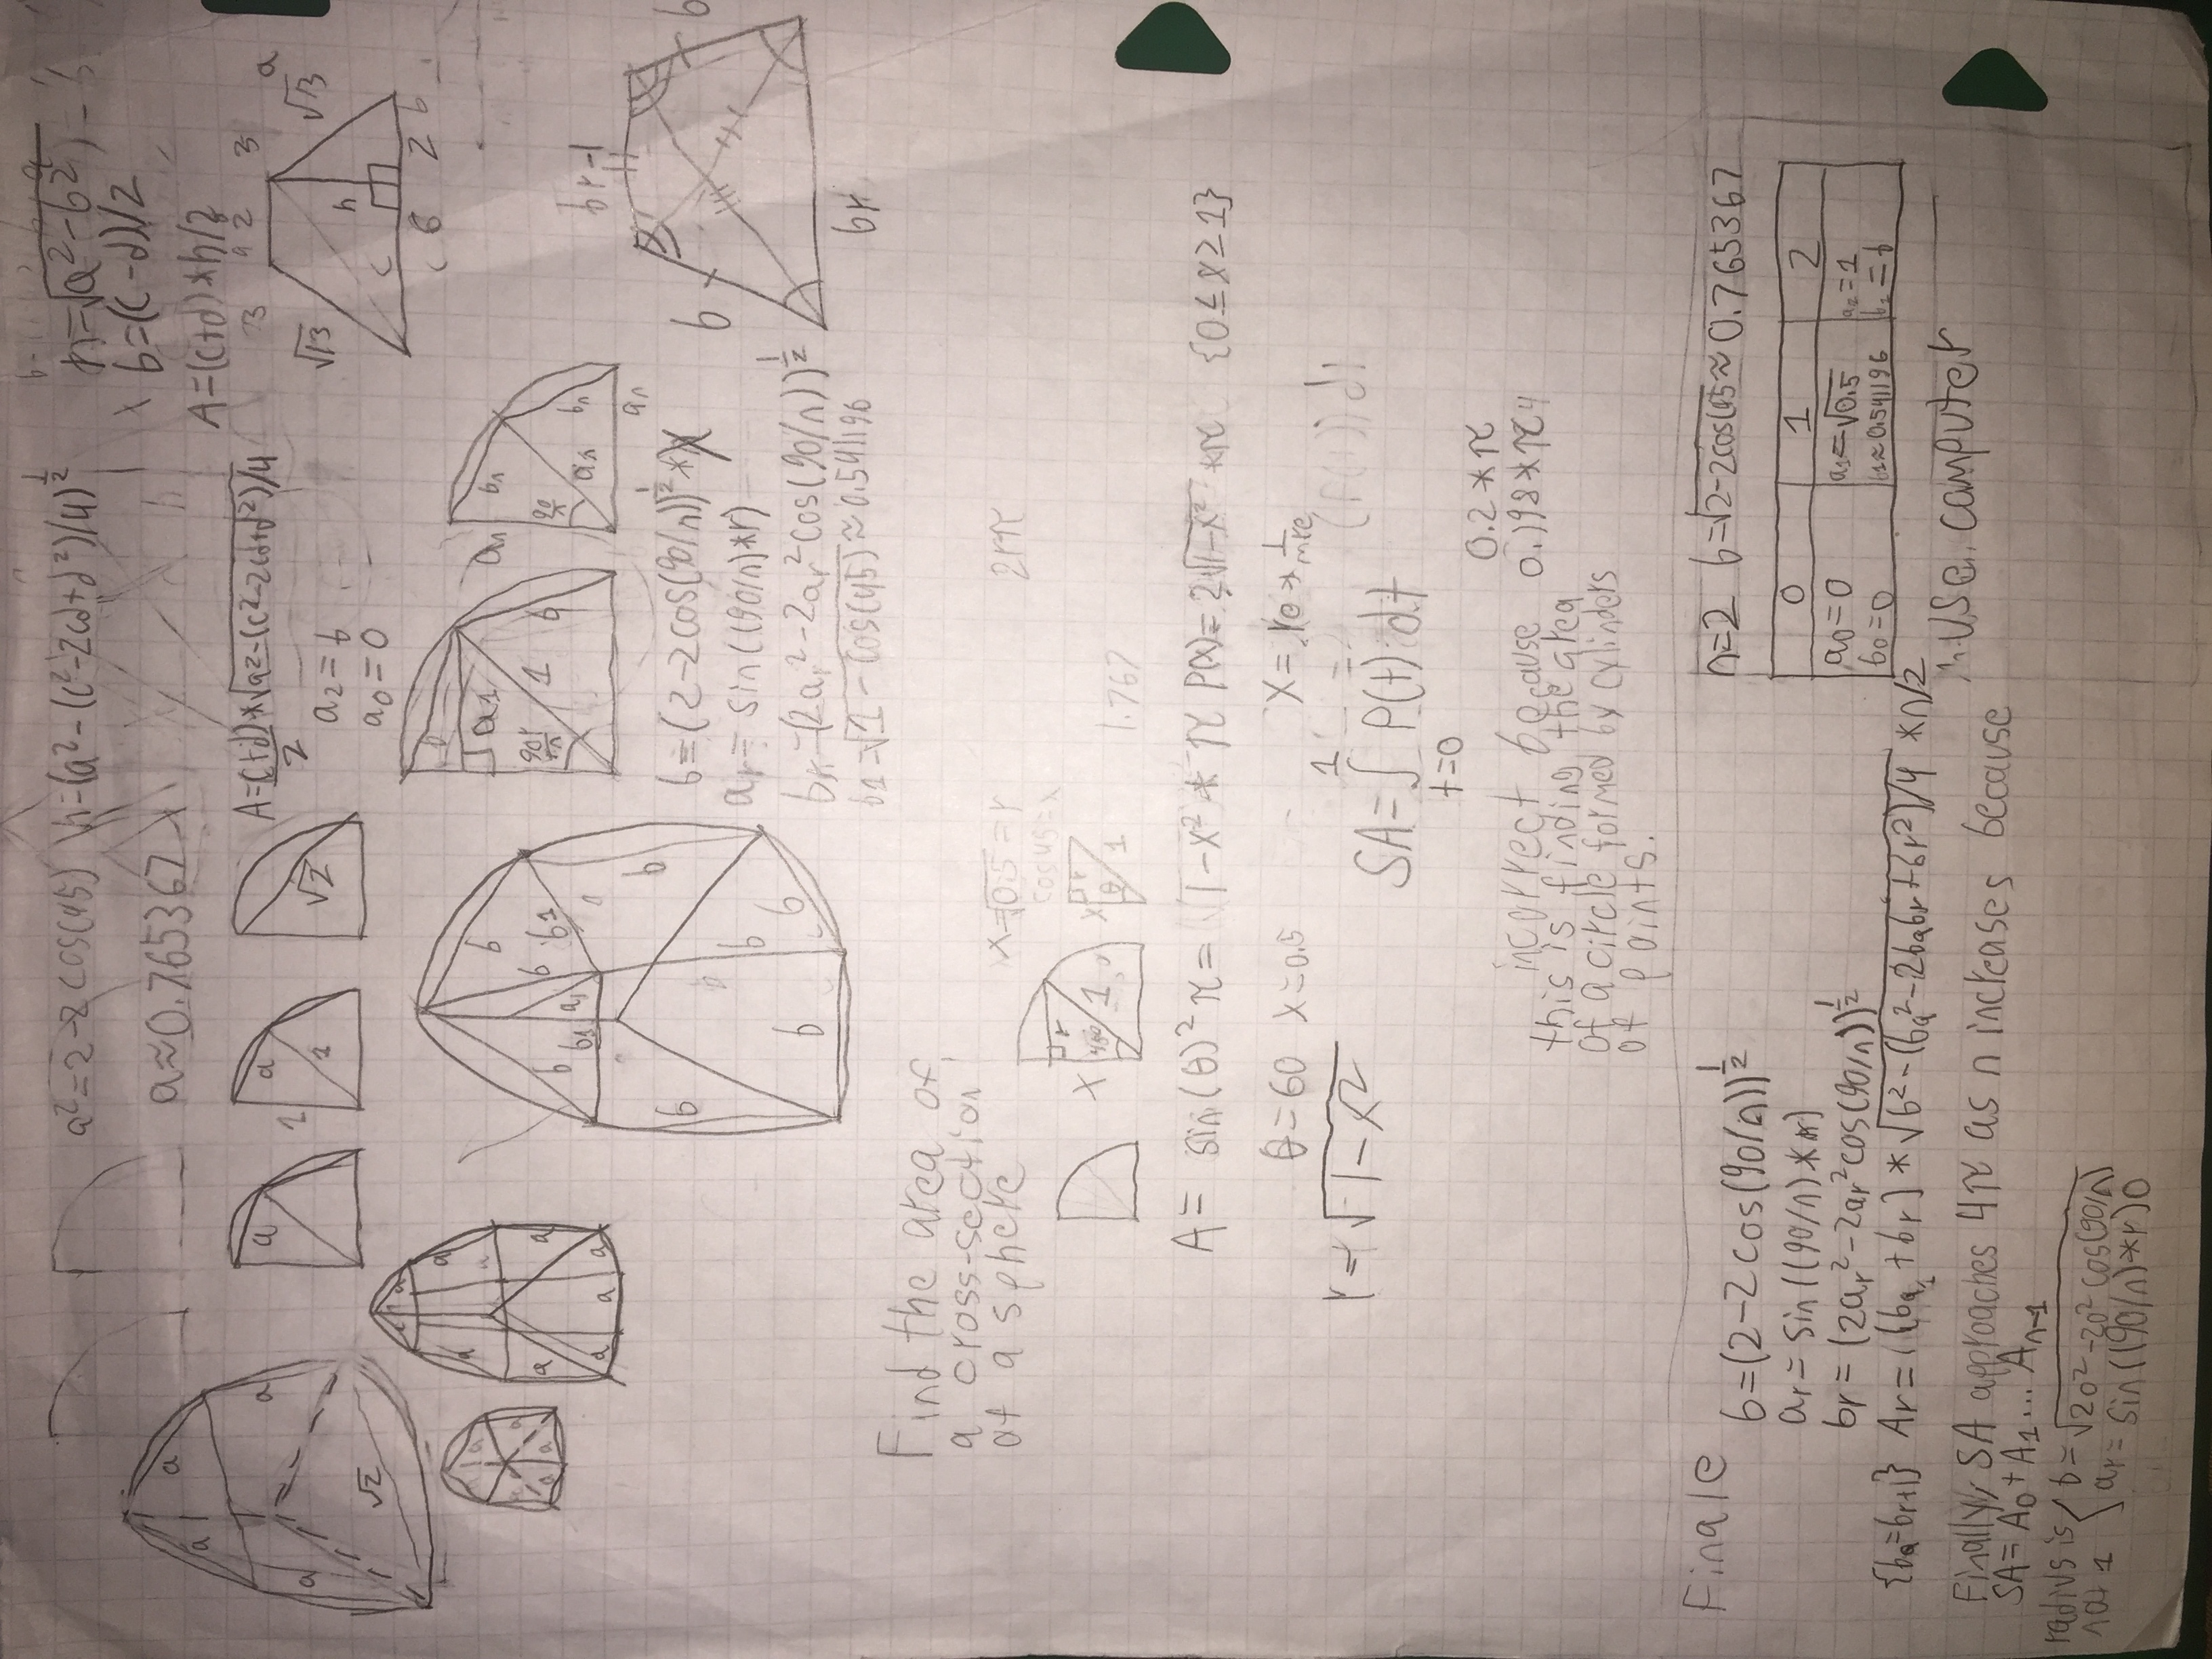 a²=2-2cos(45)
h=(a²-(c²-2cd+d²)/4)^½
h=√(a²-b²)
b=(c-d)/2
a≈0.765367
A=(c+d)*h/2
A=(c+d)/2*√(a²-(c²-2cd+d²)/4)
a₂=b
a₀=0
a
a
a
a
√2
a
a
1
1
√2
3
2
3
√13
√13
a
h
c
c 6
2 b
a
a
a
a
a
a
a
b
b
b
b₁
a₁
b
b₁
b
b
b
b
b
a₁
90r/n
1
b
aₙ
bₙ
90/n
aₙ
bₙ
aₙ
br-1
b
b
br
b=(2-2cos(90/n))^½*
ar=sin((90/n)*r)
br=(2ar²-2ar²cos(90/n))^½
b1=√(1-cos(45))≈0.541196
Find the area of
a cross-section
of a sphere
x=√0.5=r
cos45=x
2rπ
x
r
45°
1
x
r
θ
1
1.767
A= sin(θ)²π=√1-x² * π P(x)=2√1-x² *π {0≤x≥1}
θ=60 x=0.5
r=√1-x²
SA=∫ P(t) dt
1
t=0
0.2*π
0.198*π4
incorrect because
this is finding the area
of a circle formed by cylinders
of points.
Finale
b=(2-2cos(90/n))^½
ar=sin((90/n)*r)
br=(2ar²-2ar²cos(90/n))^½
{ba=br+1} Ar=((ba+br)*√(b²-(ba²-2babr+br²)/4) *n/2
n=2 b=√2-2cos(45≈0.765367
0 1 2
a₀=0 a₁=√0.5 a₂=1
b₀=0 b1≈0.541196 b₂=b
use computer
Finally, SA approaches 4π as n increases because
SA=A₀+A₁...Aₙ₋₁
radius is
not 1
b=√2o²-2o²cos(90/n)
ar=sin((90/n)*r)o